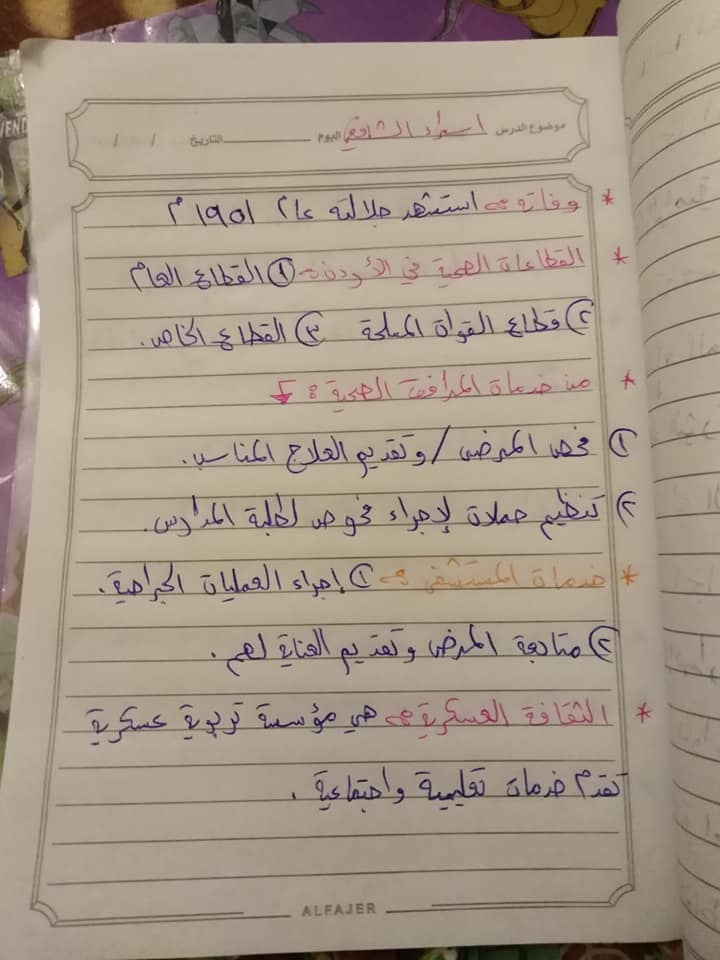 موضوع الدرس اسراء الشافعي اليوم التاريخ / /
* وفاته استشهد جلالته عام ١٩٥١م
* القطاعات الصحية في الأردن ١ القطاع العام
٢ قطاع القواة المسلحة ٣ القطاع الخاص.
* من خدمات المرافق الصحية :
١ فحص المرضى / وتقديم العلاج المناسب.
٢ تنظيم حملات لإجراء فحوص لطلبة المدارس.
* خدمات المستشفى ١ إجراء العمليات الجراحية.
٢ متابعة المرضى وتقديم العناية لهم.
* الثقافة العسكرية هي مؤسسة تربوية عسكرية
تقدم خدمات تعليمية واجتماعية.
ALFAJER